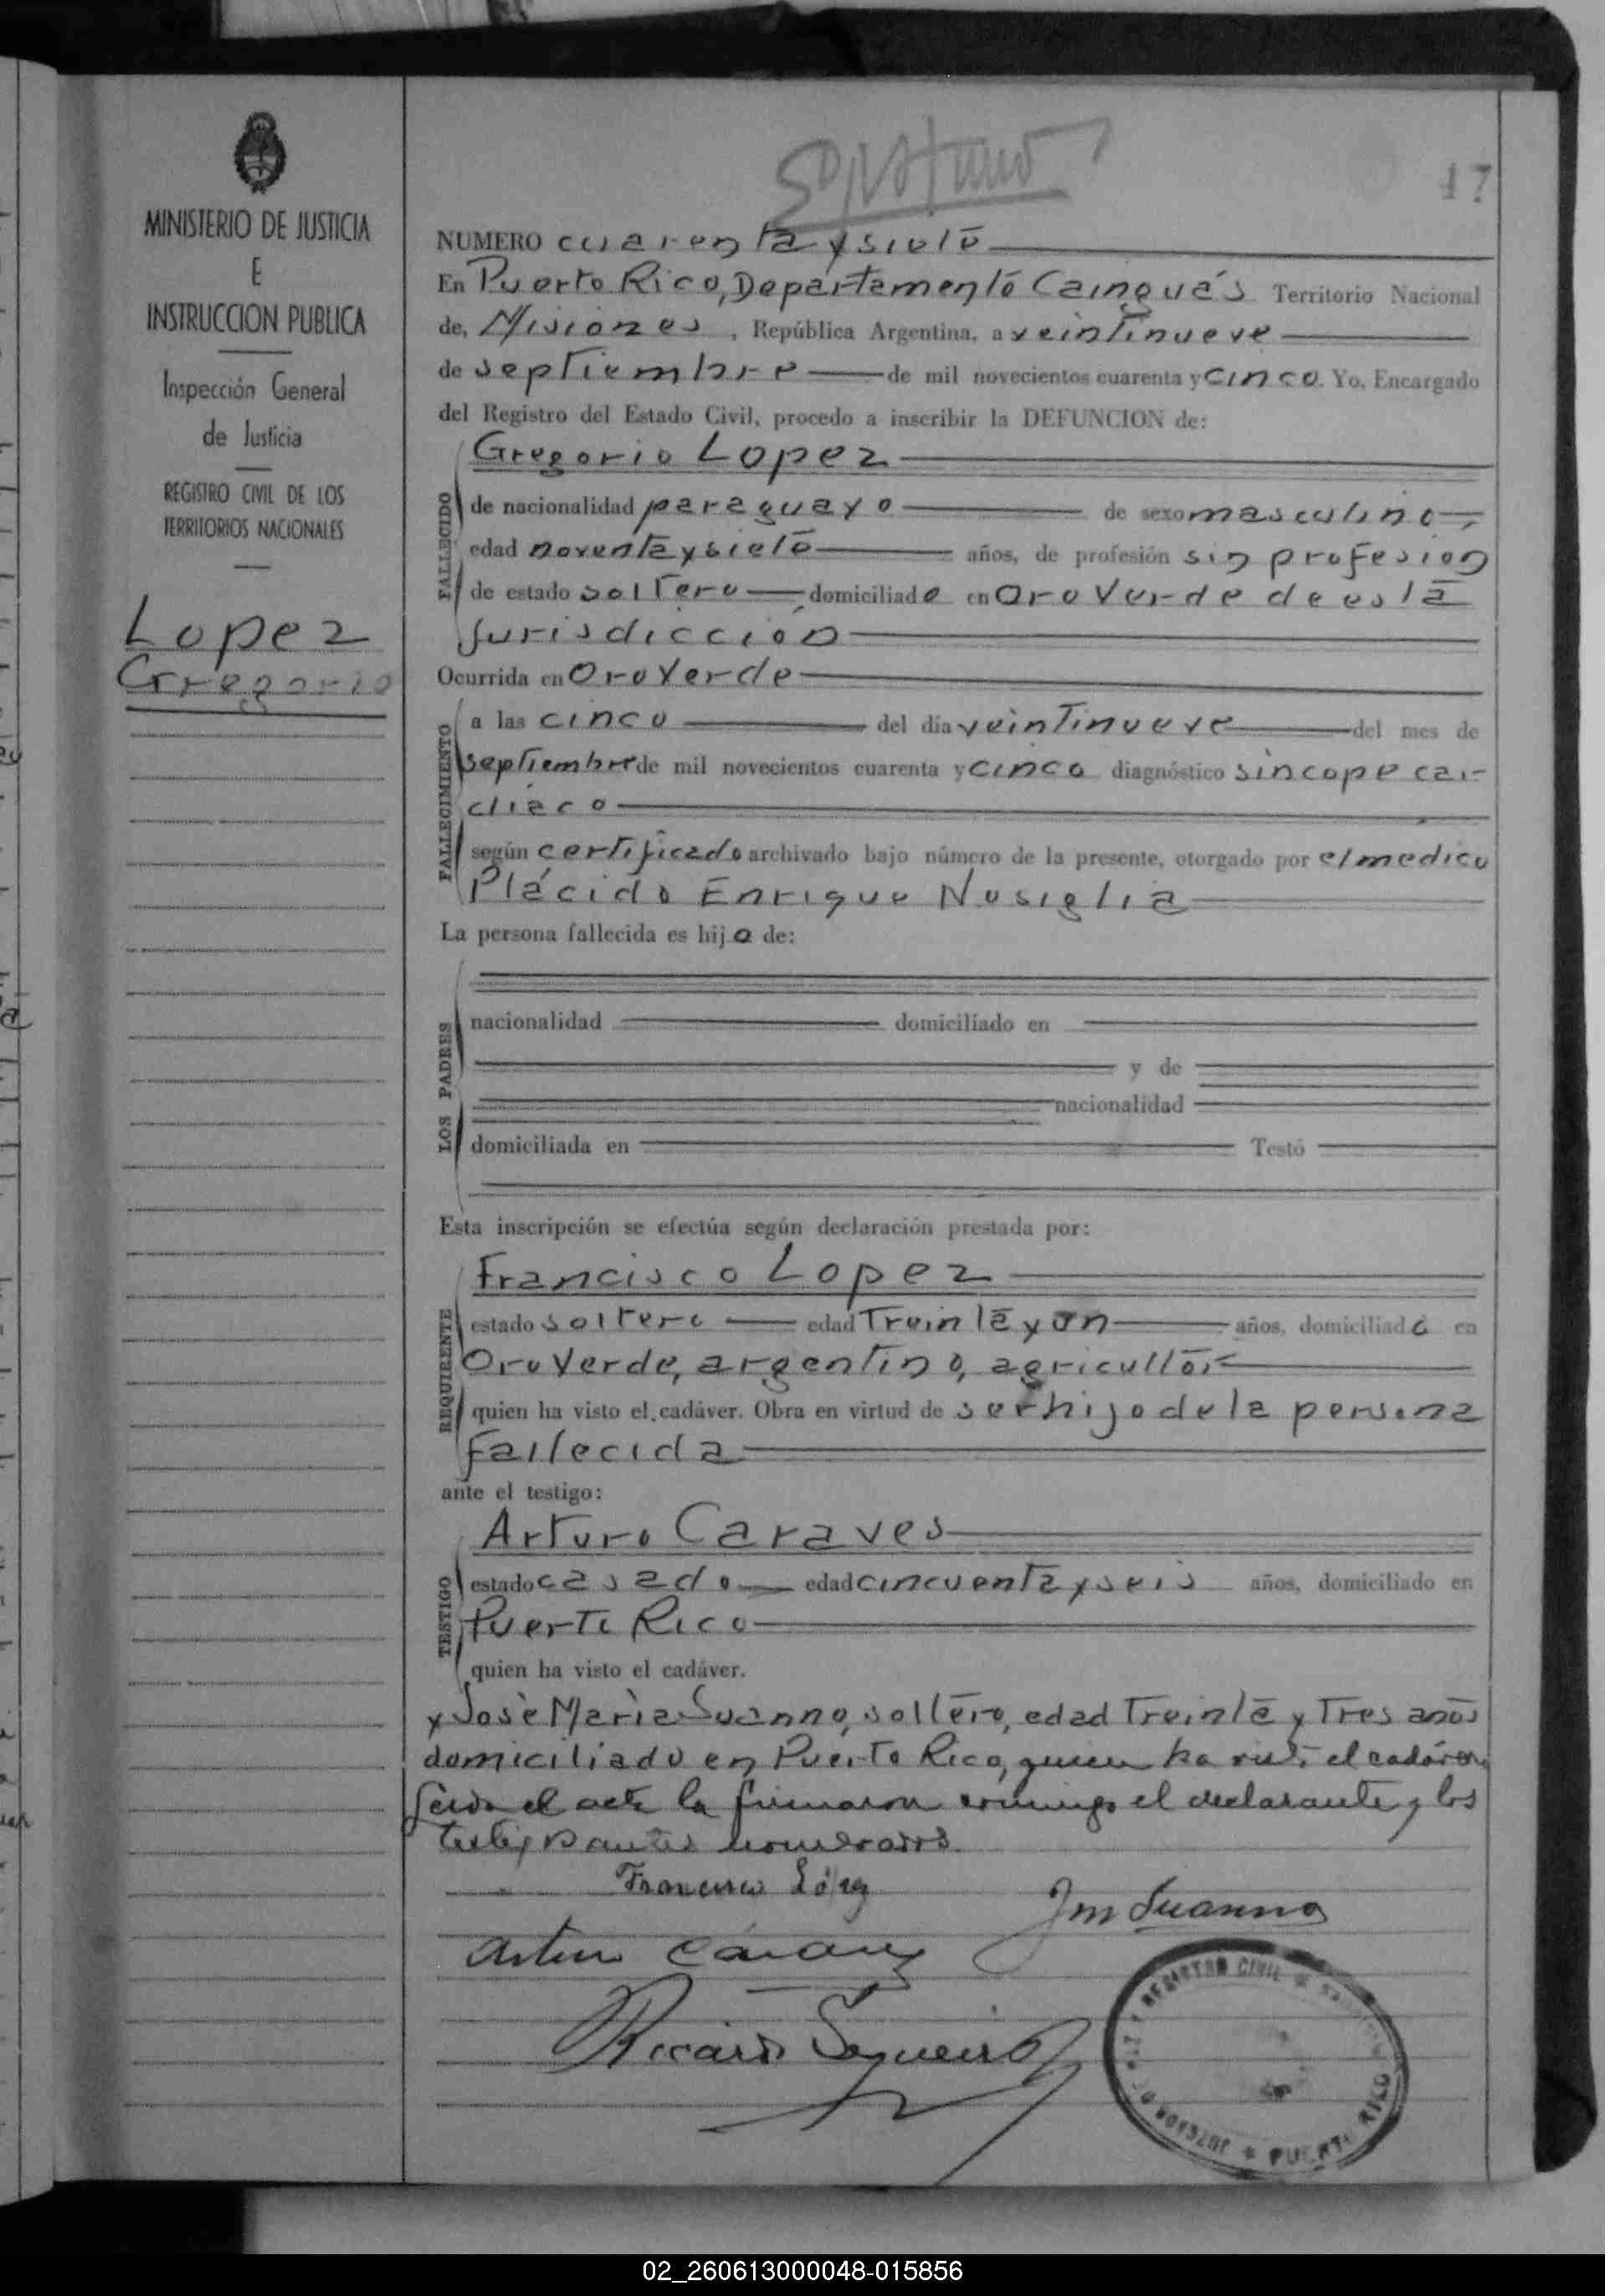 17
MINISTERIO DE JUSTICIA
E
INSTRUCCION PUBLICA
Inspección General
de Justicia
REGISTRO CIVIL DE LOS
TERRITORIOS NACIONALES
Lopez
Gregorio
NUMERO cuarenta y siete
En Puerto Rico, Departamento Cainguás Territorio Nacional
de, Misiones, República Argentina, a veintinueve
de septiembre de mil novecientos cuarenta y cinco. Yo, Encargado
del Registro del Estado Civil, procedo a inscribir la DEFUNCION de:
FALLECIDO
Gregorio Lopez
de nacionalidad paraguayo de sexo masculino
edad noventa y siete años, de profesión sin profesion
de estado soltero domiciliado en Oro Verde de esta
jurisdicción
Ocurrida en Oro Verde
FALLECIMIENTO
a las cinco del día veintinueve del mes de
septiembre de mil novecientos cuarenta y cinco diagnóstico sincope car-
diaco
según certificado archivado bajo número de la presente, otorgado por el medico
Plácido Enrique Nosiglia
La persona fallecida es hijo de:
LOS PADRES
nacionalidad domiciliado en
y de
nacionalidad
domiciliada en Testó
Esta inscripción se efectúa según declaración prestada por:
REQUIRENTE
Francisco Lopez
estado soltero edad Treinta y un años, domiciliado en
Oro Verde, argentino, agricultor
quien ha visto el cadáver. Obra en virtud de ser hijo de la persona
fallecida
ante el testigo:
TESTIGO
Arturo Caraves
estado casado edad cincuenta y seis años, domiciliado en
Puerto Rico
quien ha visto el cadáver.
y José María Suanno, soltero, edad Treinta y Tres años
domiciliado en Puerto Rico, quien ha visto el cadáver.
Leida el acta la firmaron conmigo el declarante y los
testigos antes nombrados.
Francisco López
Jm Suanno
Arturo
Ricardo Sequeira
REGISTRO CIVIL
JUZGADO DE PAZ
PUERTO RICO
02_260613000048-015856